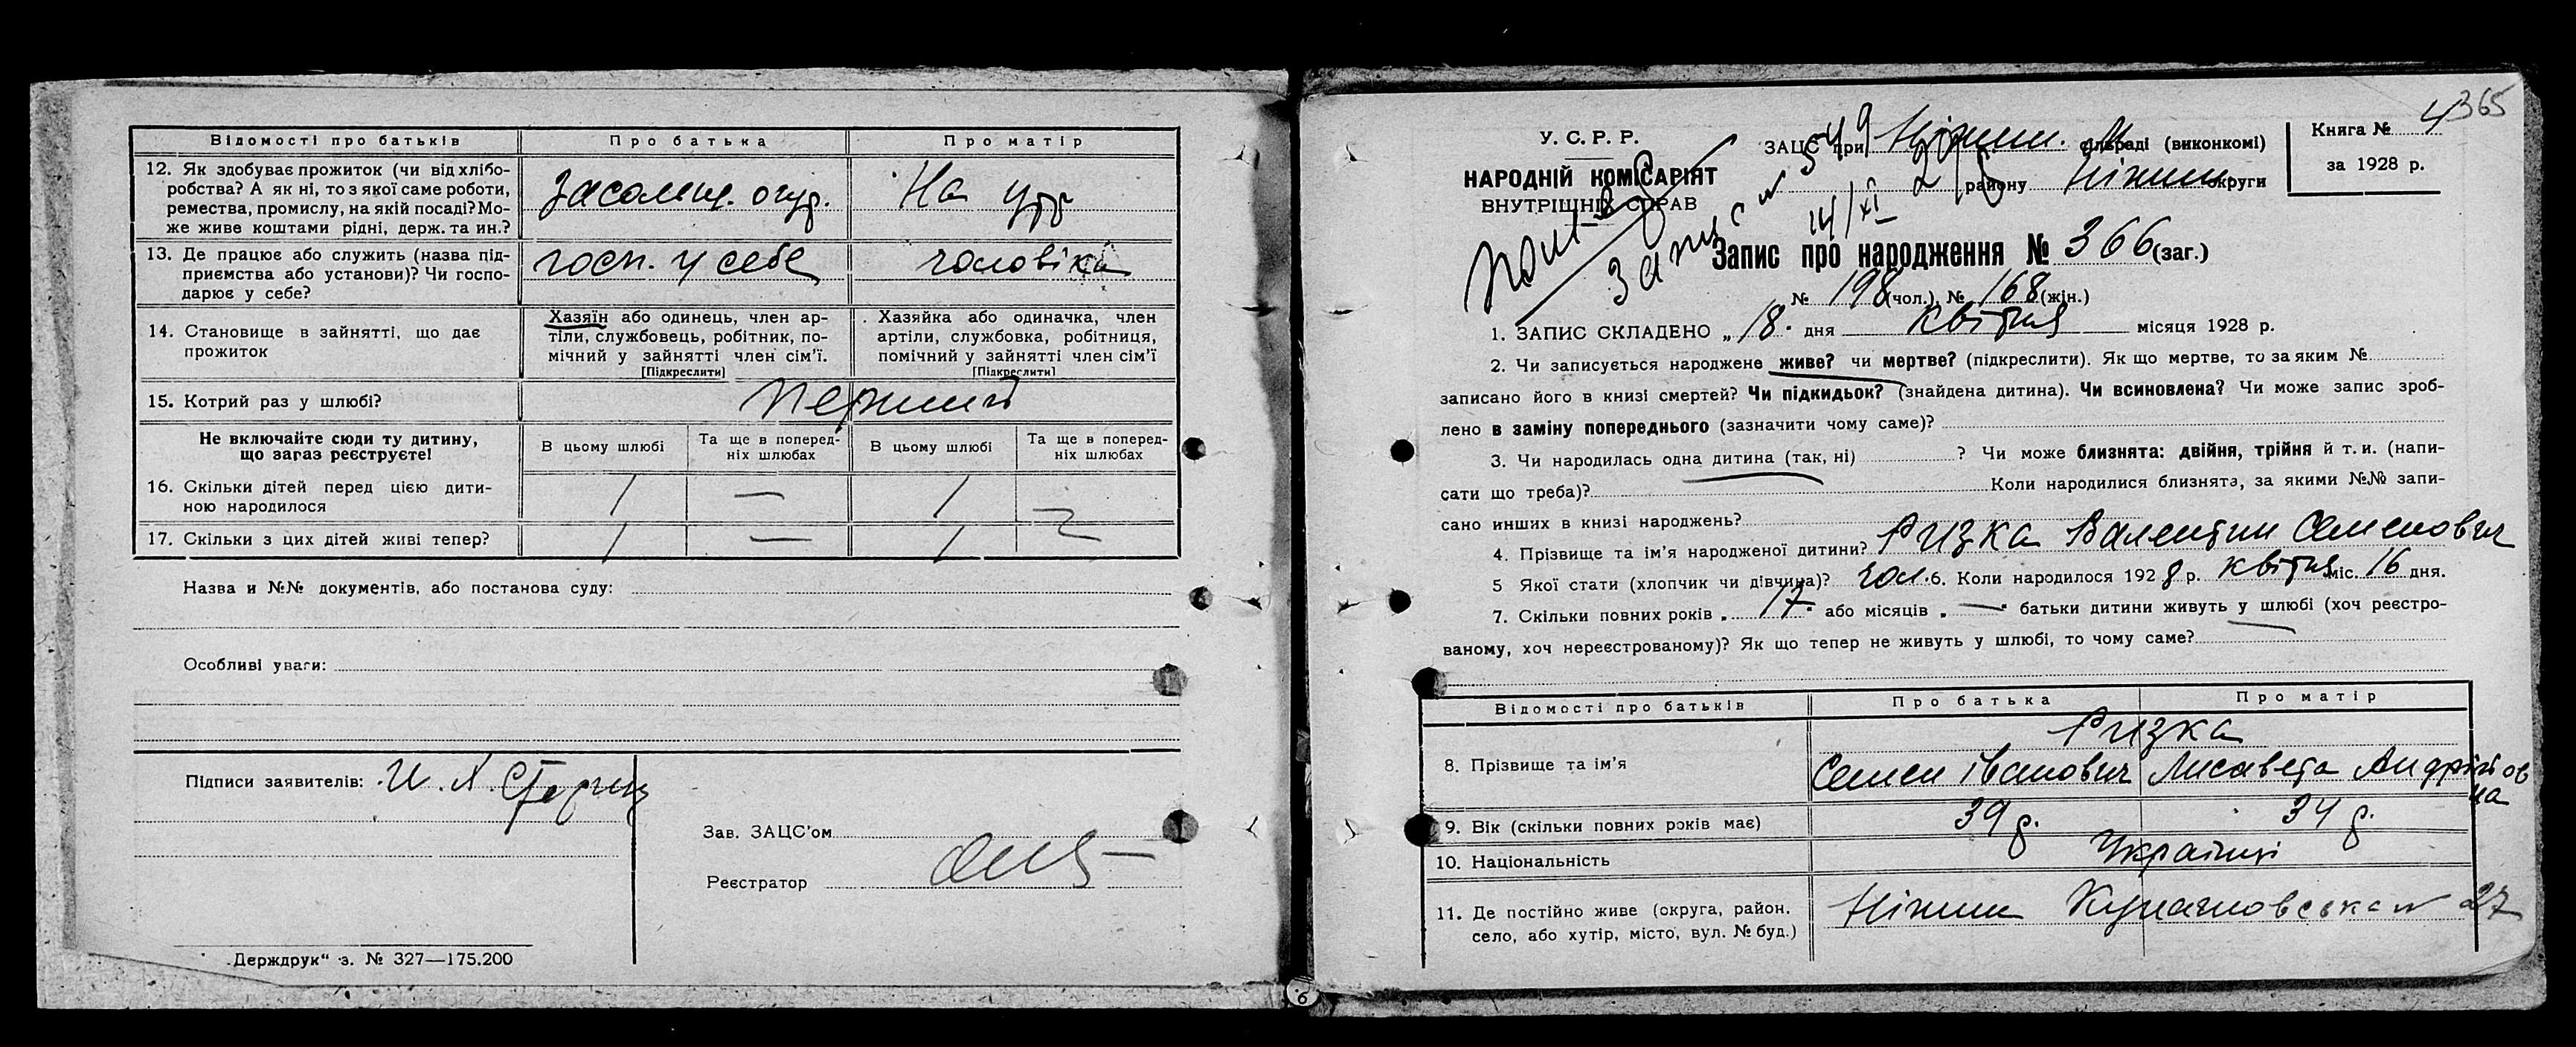 Відомості про батьків Про батька Про матір
12. Як здобуває прожиток (чи від хлібо-
робства? А як ні, то з якої саме роботи,
ремества, промислу, на якій посаді? Мо-
же живе коштами рідні, держ. та ин.?
Засолищ. огур. На утр
13. Де працює або служить (назва під-
приємства або установи)? Чи госпо-
дарює у себе?
госп. у себе чоловіка
14. Становище в зайнятті, що дає
прожиток
Хазяїн або одинець, член ар-
тіли, службовець, робітник, по-
мічний у зайнятті член сім'ї.
[Підкреслити]
Хазяйка або одиначка, член
артіли, службовка, робітниця,
помічний у зайнятті член сім'ї
[Підкреслити]
15. Котрий раз у шлюбі? перший
Не включайте сюди ту дитину,
що загаз реєструєте!
В цьому шлюбі Та ще в поперед-
ніх шлюбах В цьому шлюбі Та ще в поперед-
ніх шлюбах
16. Скільки дітей перед цією дити-
ною народилося 1 — 1 —
17. Скільки з цих дітей живі тепер? 1 — 1 —
Назва и №№ документів, або постанова суду:
Особливі уваги:
Підписи заявителів: И. А.
Зав. ЗАЦС'ом
Реєстратор
„Держдрук" з. № 327—175.200
365
У. С. Р. Р.
НАРОДНІЙ КОМІСАРІЯТ
ВНУТРІШНІХ СПРАВ
ЗАЦС при Ніжин. сільраді (виконкомі)
району Ніжин. округи
Книга № 4
за 1928 р.
Запис № 549
14/XI 28
Запис про народження № 366 (заг.)
№ 198 (чол.), № 168 (жін.)
1. ЗАПИС СКЛАДЕНО „18" дня квітня місяця 1928 р.
2. Чи записується народжене живе? чи мертве? (підкреслити). Як що мертве, то за яким №
записано його в книзі смертей? Чи підкидьок? (знайдена дитина). Чи всиновлена? Чи може запис зроб-
лено в заміну попереднього (зазначити чому саме)?
3. Чи народилась одна дитина (так, ні) ? Чи може близнята: двійня, трійня й т. и. (напи-
сати що треба)? Коли народилися близнята, за якими №№ запи-
сано инших в книзі народжень?
4. Прізвище та ім'я народженої дитини? Ризка Валентин Семенович
5 Якої стати (хлопчик чи дівчина)? чол. 6. Коли народилося 1928 р. квітня міс. 16 дня.
7. Скільки повних років „17" або місяців „—" батьки дитини живуть у шлюбі (хоч реєстро-
ваному, хоч нереєстрованому)? Як що тепер не живуть у шлюбі, то чому саме?
Відомості про батьків Про батька Про матір
Ризка
8. Прізвище та ім'я Семен Іванович Лисавета Андрійов
на
9. Вік (скільки повних років має) 39 р. 34 р.
10. Національність Українці
11. Де постійно живе (округа, район,
село, або хутір, місто, вул. № буд.)
Ніжин № 27
6